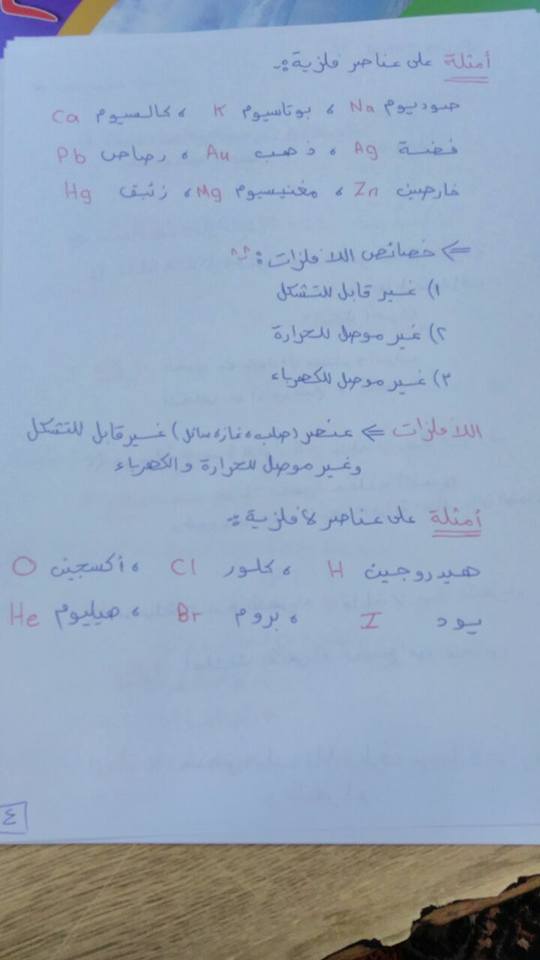 أمثلة على عناصر فلزية :-
صوديوم Na ، بوتاسيوم K ، كالسيوم Ca
فضة Ag ، ذهب Au ، رصاص Pb
خارصين Zn ، مغنيسيوم Mg ، زئبق Hg
<= خصائص اللافلزات :
١) غير قابل للتشكل
٢) غير موصل للحرارة
٣) غير موصل للكهرباء
اللافلزات <= عنصر (صلب، غاز، سائل) غير قابل للتشكل
وغير موصل للحرارة والكهرباء
أمثلة على عناصر لافلزية :-
هيدروجين H ، كلور Cl ، أكسجين O
يود I ، بروم Br ، هيليوم He
٤